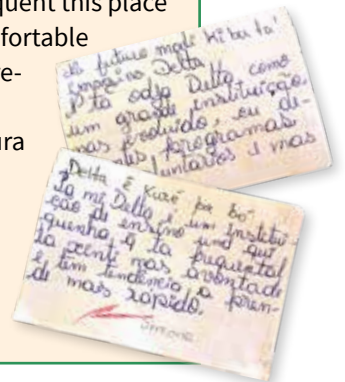 quent this place
fortable
re-
ura
futuro modi ki bu ta
Delta
N ta odja Delta, como
um grande instituição,
mas evoluido, cu di-
programas
i mas
Delta é kuzé pa bo
Pa mi Delta é um institui
ção di ensino und qui
quenha q ta friquental
ta xenti mas avontadi
e tem tendencia a pren-
di mas rápido.